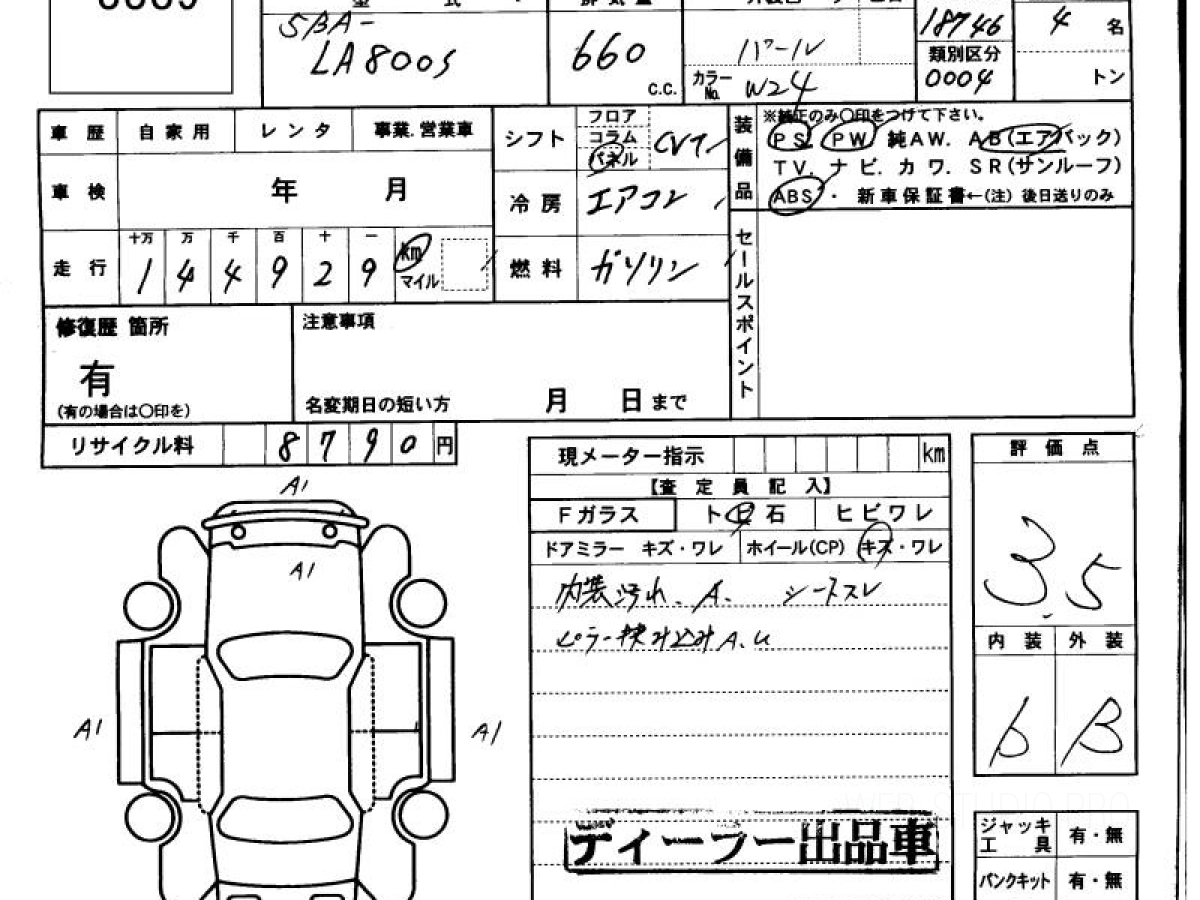 型 式
5BA-
LA800S
660
c.c.
パール
カラーNo. W24
18746
類別区分
0004
4 名
トン
車歴 自家用 レンタ 事業.営業車
シフト フロア コラム パネル CVT
装備品
※純正のみ〇印をつけて下さい。
PS PW 純AW. AB(エアバック)
TV. ナビ. カワ. SR(サンルーフ)
ABS ・ 新車保証書←(注) 後日送りのみ
車検 年 月
冷房 エアコン
走行 十万 万 千 百 十 一
1 4 4 9 2 9 km マイル
燃料 ガソリン
セールスポイント
修復歴 箇所
有
(有の場合は〇印を)
注意事項
名変期日の短い方 月 日 まで
リサイクル料 8790 円
現メーター指示 km
【査 定 員 記 入】
Fガラス ト ビ 石 ヒビワレ
ドアミラー キズ・ワレ ホイール(CP) キズ・ワレ
内装汚れ、A. シートスレ
ピラー挟み込みA.U
評価点
3.5
内装 外装
b B
A1
A1
A1
A1
ディーラー出品車
ジャッキ工具 有・無
パンクキット 有・無